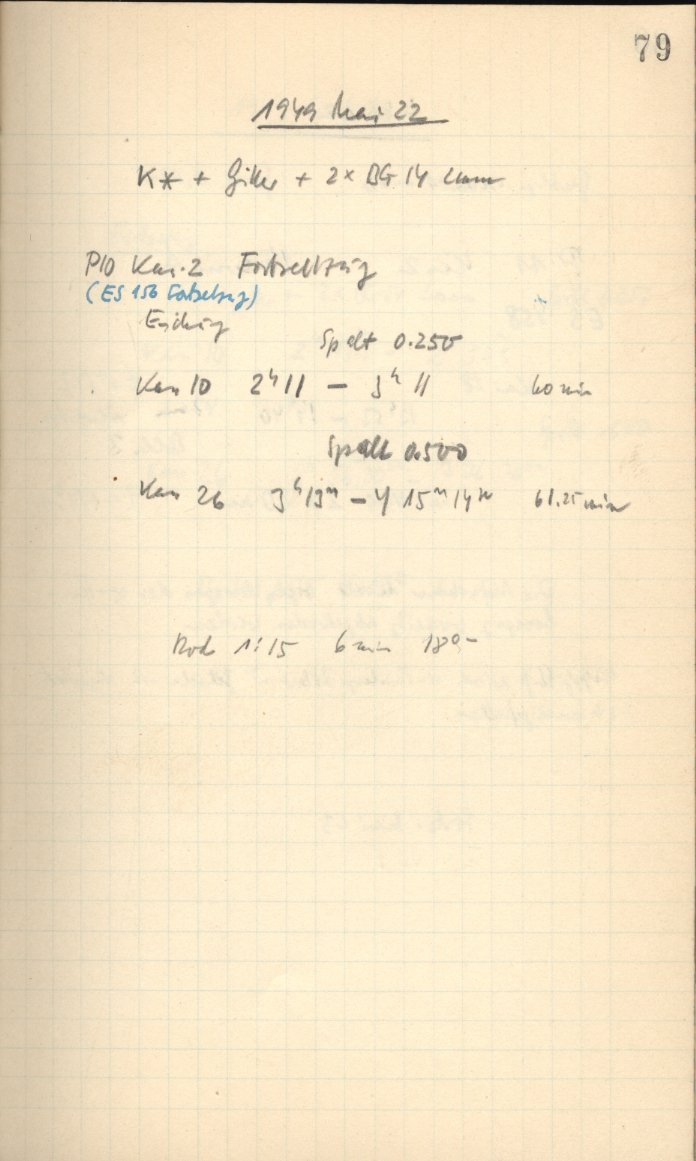 79
1949 Mai 22
K* + Gitter + 2x BG 14
P10 Kas. 2 Fortsetzung
(ES 156 Fortsetzg)
Eichung
Spalt 0.250
10 2h 11 — 3h 11 60 min
Spalt 0.500
26 3h 13m — 4 15m 14 61.25 min
Rod 1:15 6 min 18°-